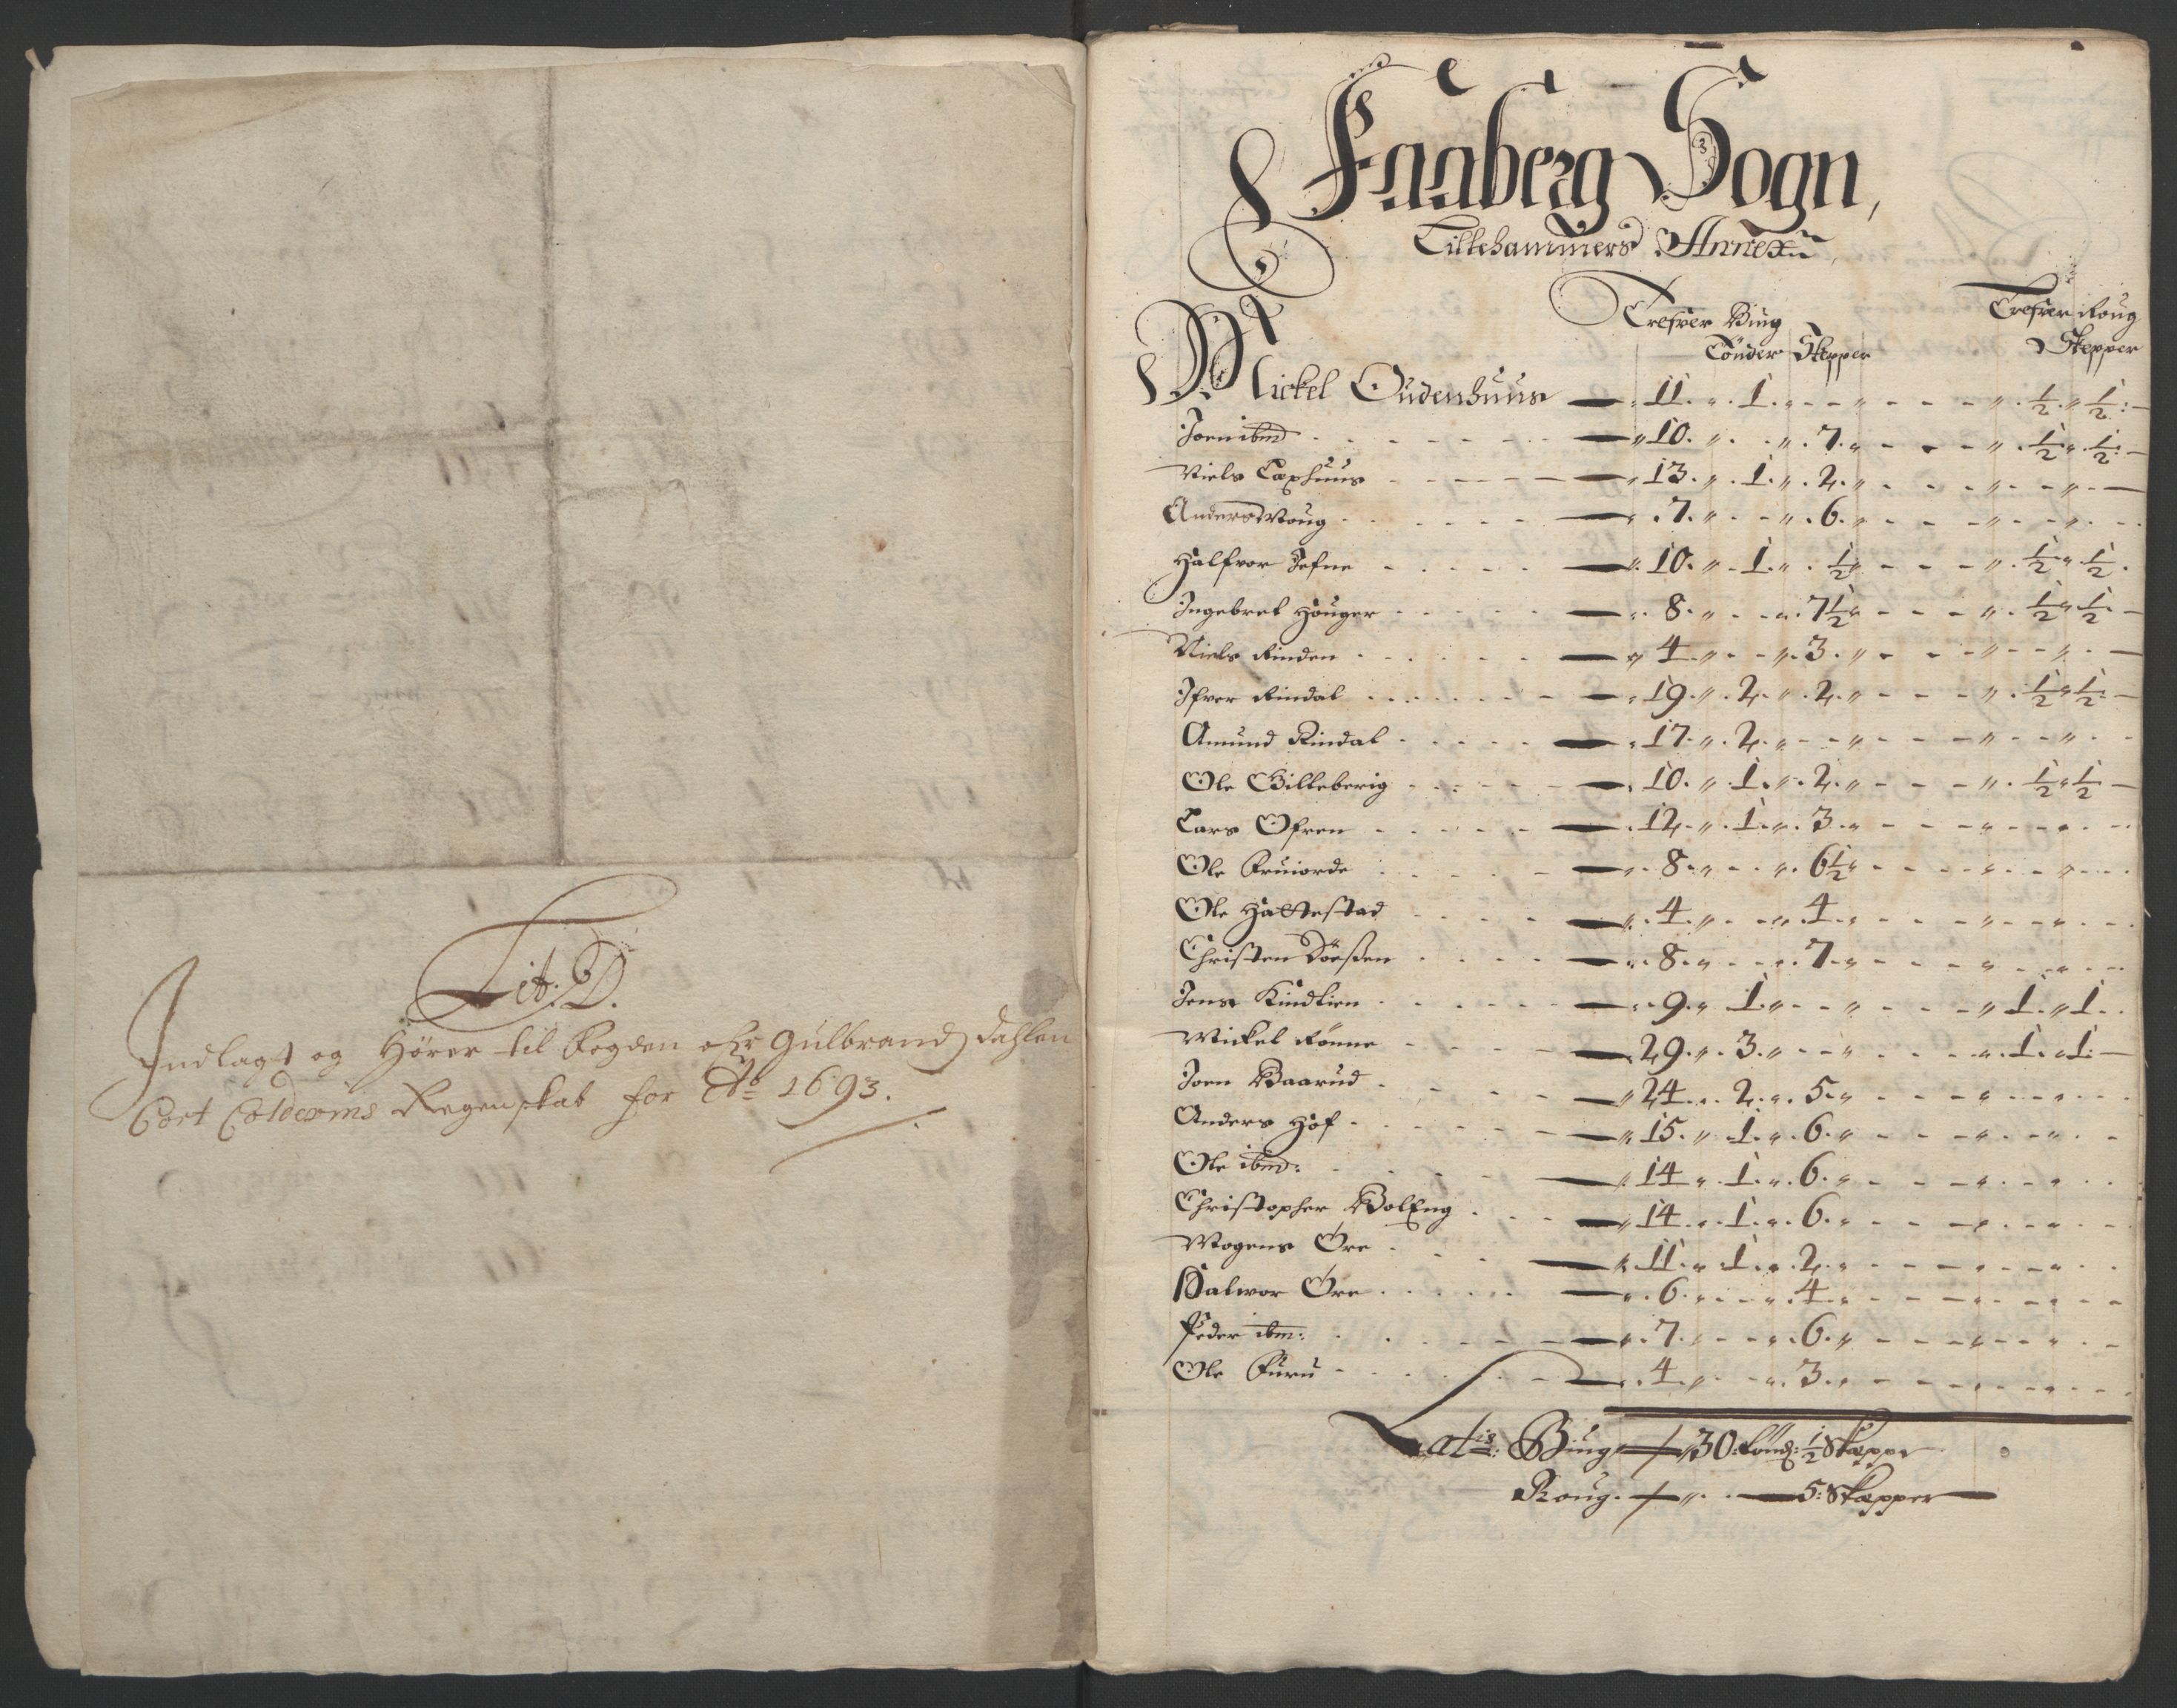 Lit: D.
Indlagt og Hører til Fogden Sr Gulbrand Dahlen
Cort Coldevins Regenskab for Ao 1693.
Faaberg Sogn,
Lillehammers Annex
Trefver Biug
Trefver Roug
Tønder Skepper
Skepper
Mickel Oudenhuus 11. 1. ½ ½
Joen ibm 10. 7. ½ ½
Niels Laxhuus 13. 1. 2.
Anders Woug 7. 6.
Halfvor Jefne 10. 1. ½ ½ ½
Ingebret Houger 8. 7½ ½ ½
Niels Rinden 4. 3.
Ifver Rindal 19. 2. 2. ½ ½
Amund Rindal 17. 2.
Ole Gilleberig 10. 1. 2. ½ ½
Lars Ofren 12. 1. 3.
Ole 8. 6½
Ole Hattestad 4. 4.
Christen 8. 7.
Jens Kindlien 9. 1. 1. 1.
Mickel Rønne 29. 3. 1. 1.
Joen Baarud 24. 2. 5.
Anders Hof 15. 1. 6.
Ole ibm: 14. 1. 6.
Christopher BolEng 14. 1. 6.
Mogens Øre 11. 1. 2.
Halvor Øre 6. 4.
Peder ibm: 7. 6.
Ole Furu 4. 3.
Latis: Biug 30: Tønd: ½ Skepper
Roug. 5: Skepper